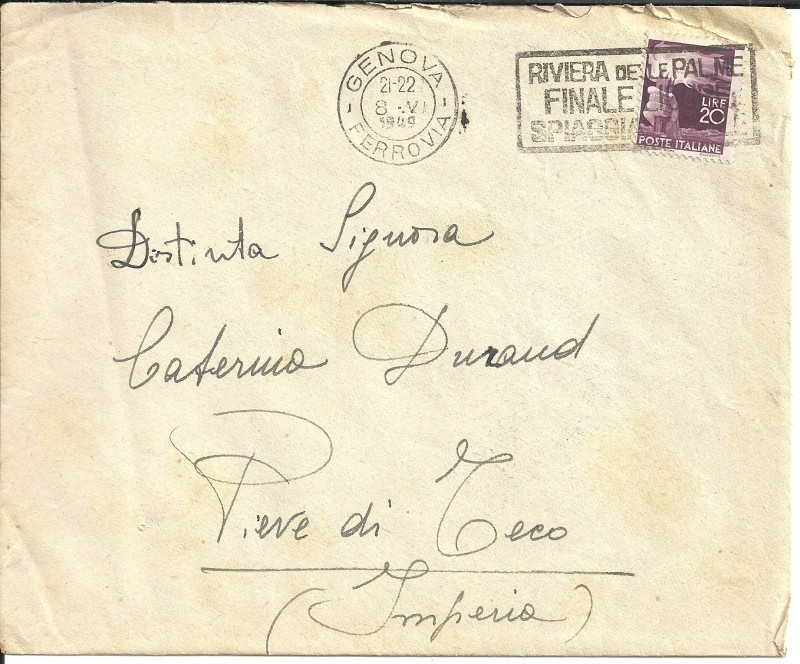 GENOVA
21-22
8 -VI
1949
FERROVIA
RIVIERA DELLE PALME
FINALE
SPIAGGIA
LIRE
20
POSTE ITALIANE
Distinta Signora
Caterina Durand
Pieve di Teco
(Imperia)